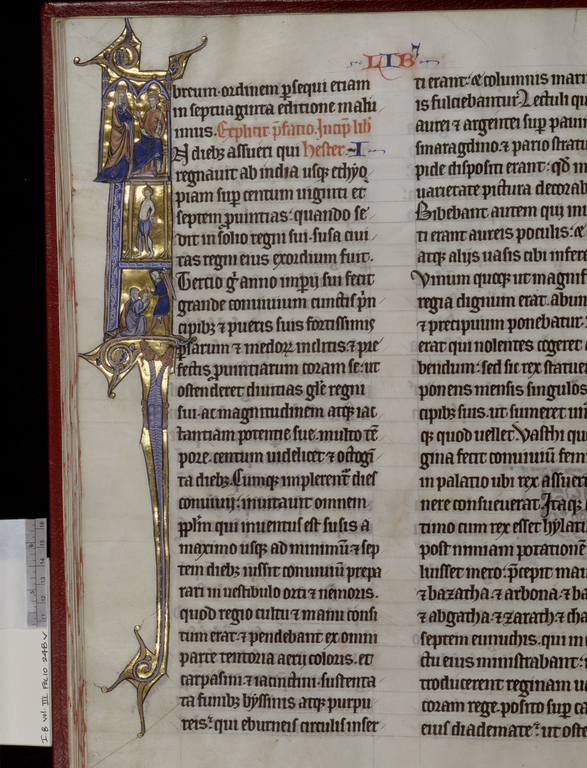 LIB'
breum ordinem ꝑsequi etiam
in septuaginta editione malu
imus. Explicit p̄fatio. Incip̄ lib̄
N dieb; assueri qui hester. I
regnauit ab india usq; ethyo
piam sup̄ centum uiginti et
septem ꝓuintias: quando se
dit in solio regni sui. susa ciui
tas regni eius exordium fuit.
Tertio g̊ anno imp̄ii sui fecit
grande conuiuium cunctis p̄n
cipib; et pueris suis fortissimis
ꝑsarum ⁊ medoꝝ inclitis: ⁊ pre
fectis ꝓuintiarum coram se: ut
ostenderet diuitias gl̄e regni
sui. ac magnitudinem atq; iac
tantiam potentie sue. multo tē
pore. centum uidelicet ⁊ octogī
ta dieb;. Cumq; implerent̄ dies
conuiuij: inuitauit omnem
pp̄lm qui inuentus est susis a
maximo usq; ad minimū: ⁊ sep
tem dieb; iussit conuiuiū prepa
rari in uestibulo orti ⁊ nemoris.
quod regio cultu ⁊ manu consi
tum erat: ⁊ pendebant ex omni
parte tentoria aerij coloris. et
carpasini ⁊ iacinctini. sustenta
ta funib; byssinis atq; purpu
reis: qui eburneis circulis inser
ti erant: ⁊ columnis mar
is fulciebantur. Lectuli qu
aurei ⁊ argentei sup̄ paui
smaragdino. ⁊ pario stratu
pide dispositi erant: qd̄ m
uarietate pictura decora
Bibebant autem qui inui
ti erant aureis poculis: ⁊
atq; alijs uasis cibi infere
Vinum quoq; ut magnif
regia dignium erat. abun
⁊ precipuum ponebatur.
erat qui nolentes cogeret
bendum: sed sic rex statue
ponens mensis singulos
cipib; suis. ut sumeret un
q; quod uellet. Vasthi qu
gina fecit conuiuiū femi
in palatio ubi rex assueri
nere consueuerat. Itaq;
timo cum rex esset hylari
post nimiam potationē
luisset mero: p̄cepit mau
⁊ bazatha. ⁊ arbona. ⁊ ba
⁊ abgatha. ⁊ zarath. ⁊ cha
septem eunuchis. qui in
ctu eius ministrabant:
troducerent reginam ua
coram rege. posito sup̄ ca
eius diademate: ut oste
I B Vol. III FOLIO 248 V